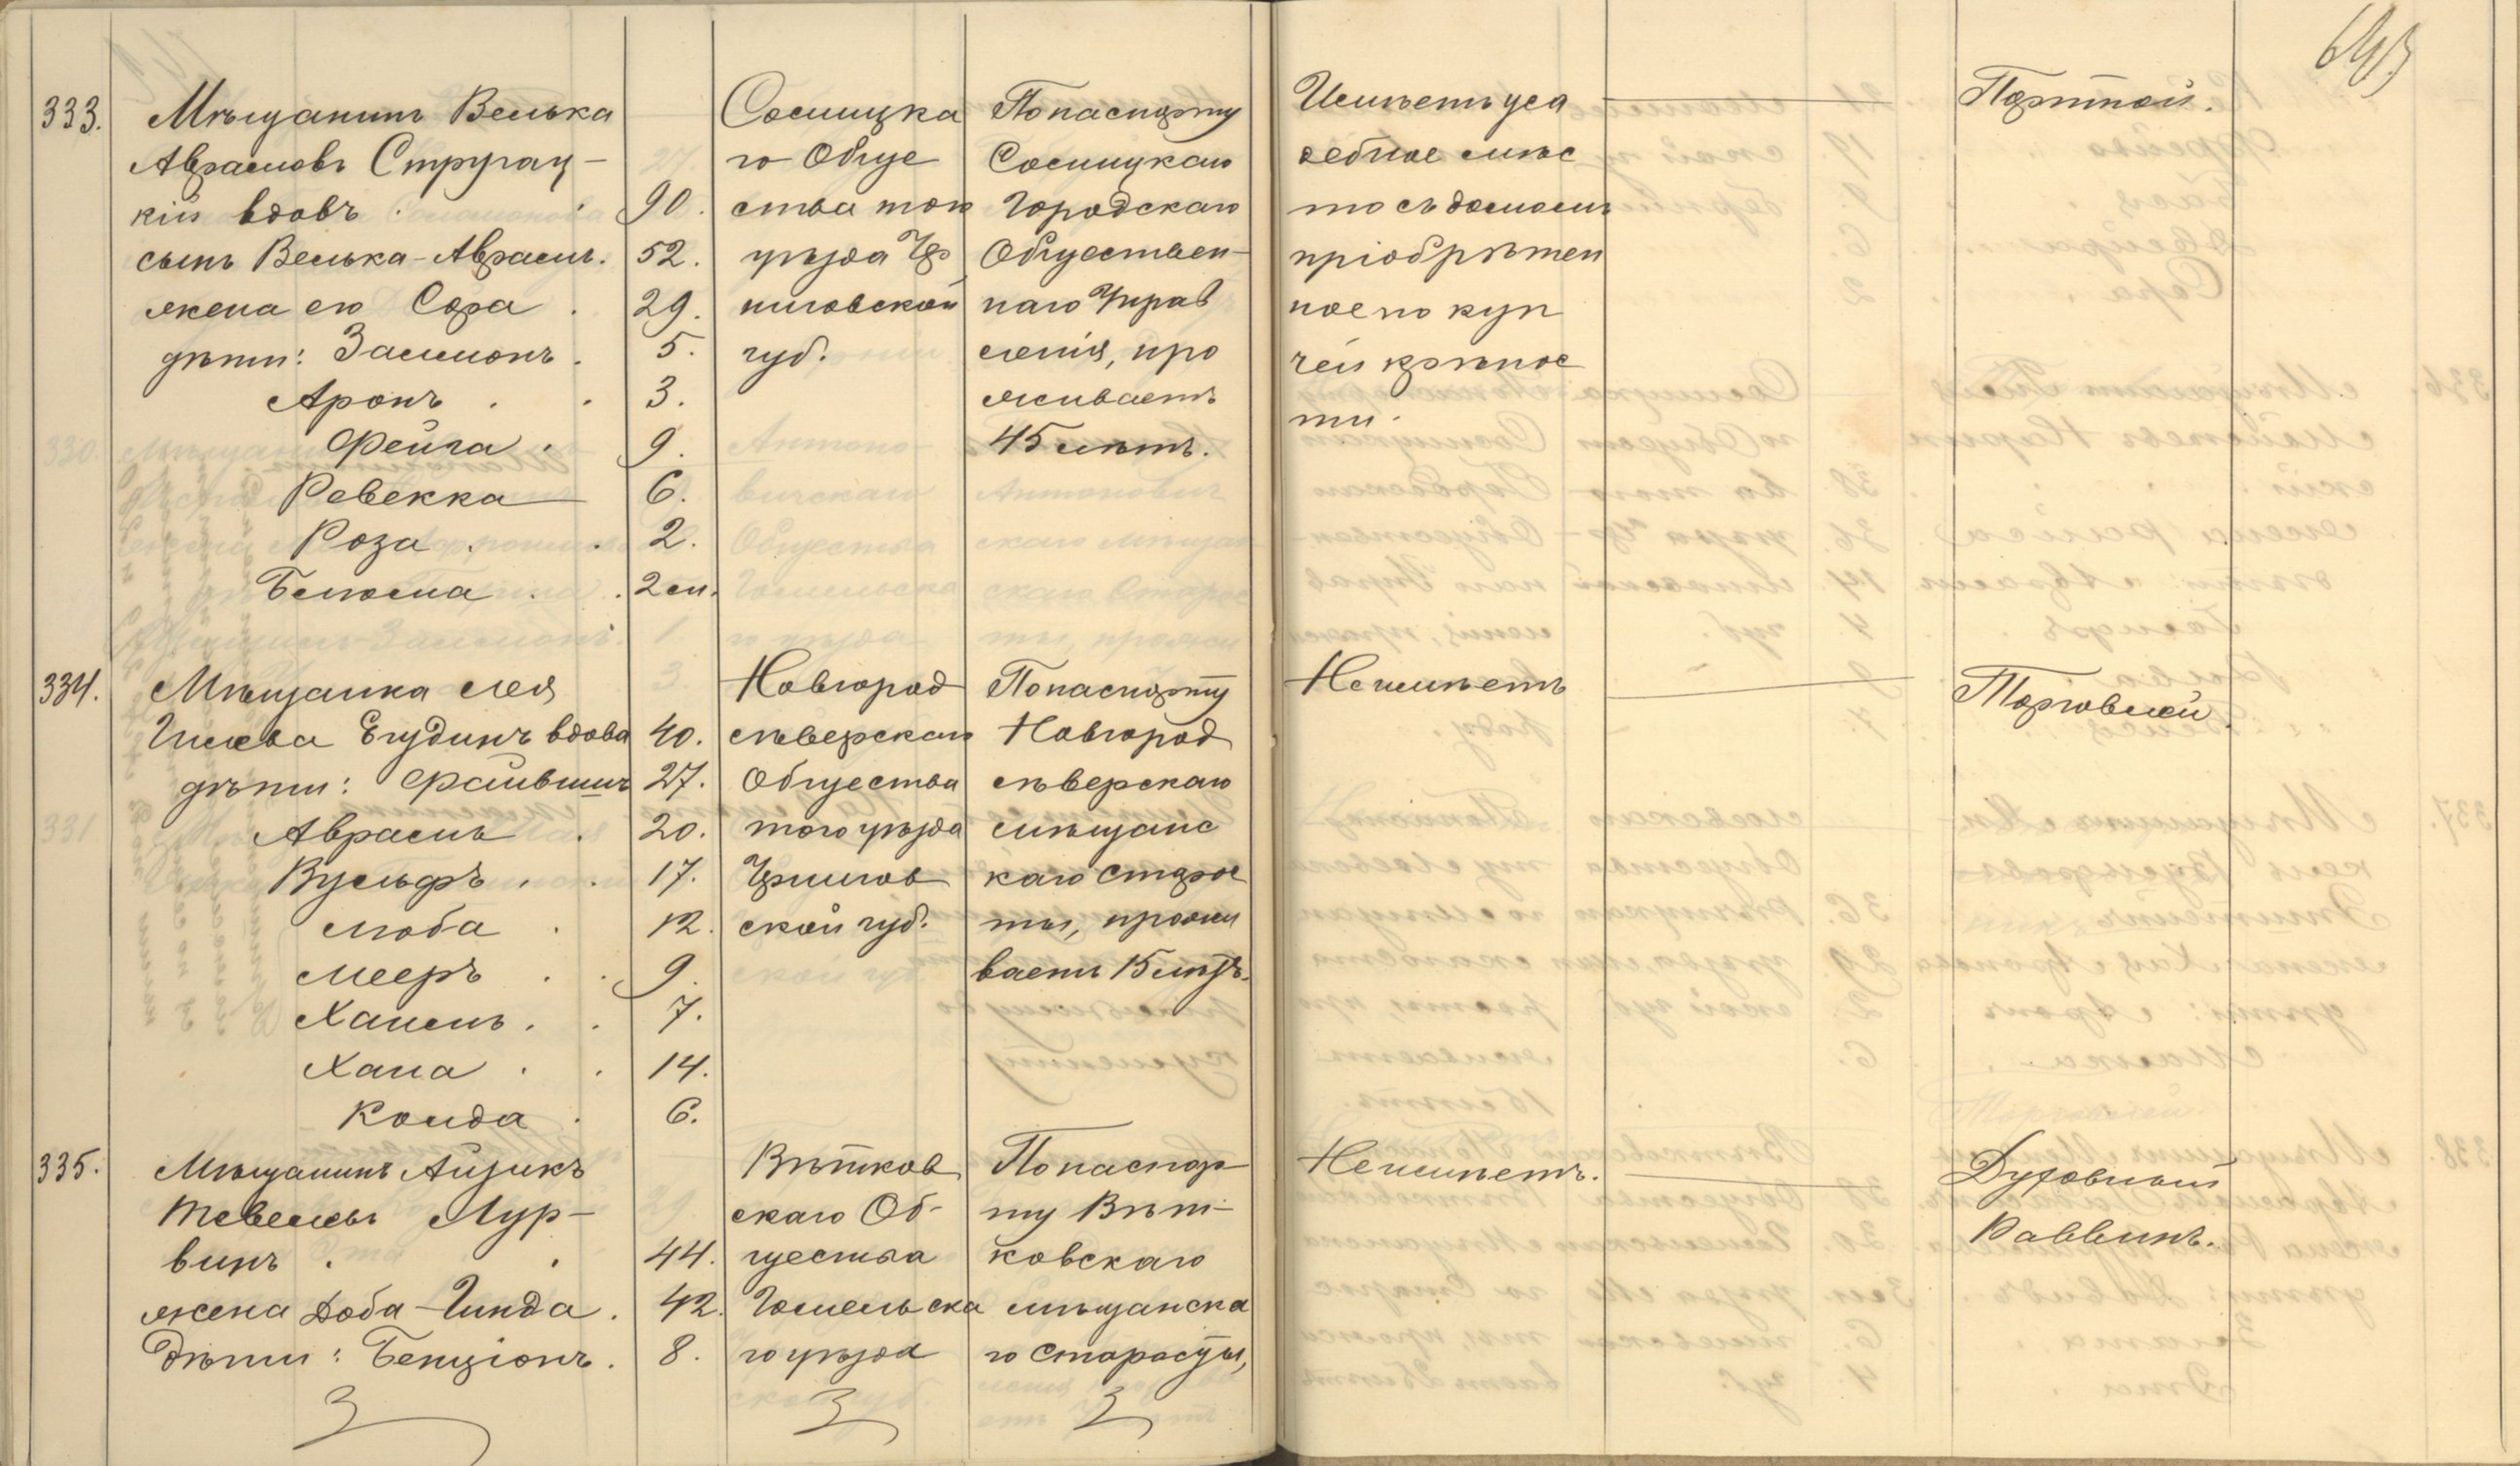 333.
Мѣщанинъ Велька
Аврамовъ Стругац-
кій вдовъ . . 90.
сынъ Велька-Аврамъ. 52.
жена его Сора . 29.
дѣти: Залмонъ . 5.
Аронъ . . 3.
Фейга . 9.
Ревекка 6.
Роза . . 2.
Блюма . . 2 м.
Сосницка
го Обще
ства того
уѣзда Чер
ниговской
губ.
По паспорту
Сосницкаго
Городскаго
Обществен-
наго Управ
ленія, про
живаетъ
45 лѣтъ.
Имѣетъ уса
дебное мѣс
то съ домомъ
пріобрѣтен
ное по куп
чей крѣпос
ти.
Портной.
334.
Мѣщанка Лея
Ицкова Егудинъ вдова 40.
дѣти: Файвишъ 27.
Аврамъ . 20.
Вульфъ . . 17.
Люба . 12.
Мееръ . . 9.
Хаимъ . . 7.
Хана . . 14.
Кольда . 6.
Новгород
сѣверскаго
Общества
того уѣзда
Чернигов
ской губ.
По паспорту
Новгород
сѣверскаго
мѣщанс
каго старос
ты, прожи
ваетъ 15 лѣтъ.
Не имѣетъ
Торговлей.
335.
Мѣщанинъ Айзикъ
Тевелевъ Лур-
винъ . . 44.
жена Доба-Гинда . 42.
Дѣти: Бенціонъ . 8.
Вѣтков
скаго Об-
щества
Гомельска
го уѣзда
По паспор
ту Вѣт-
ковскаго
мѣщанска
го Старосты,
Не имѣетъ.
Духовный
Раввинъ.